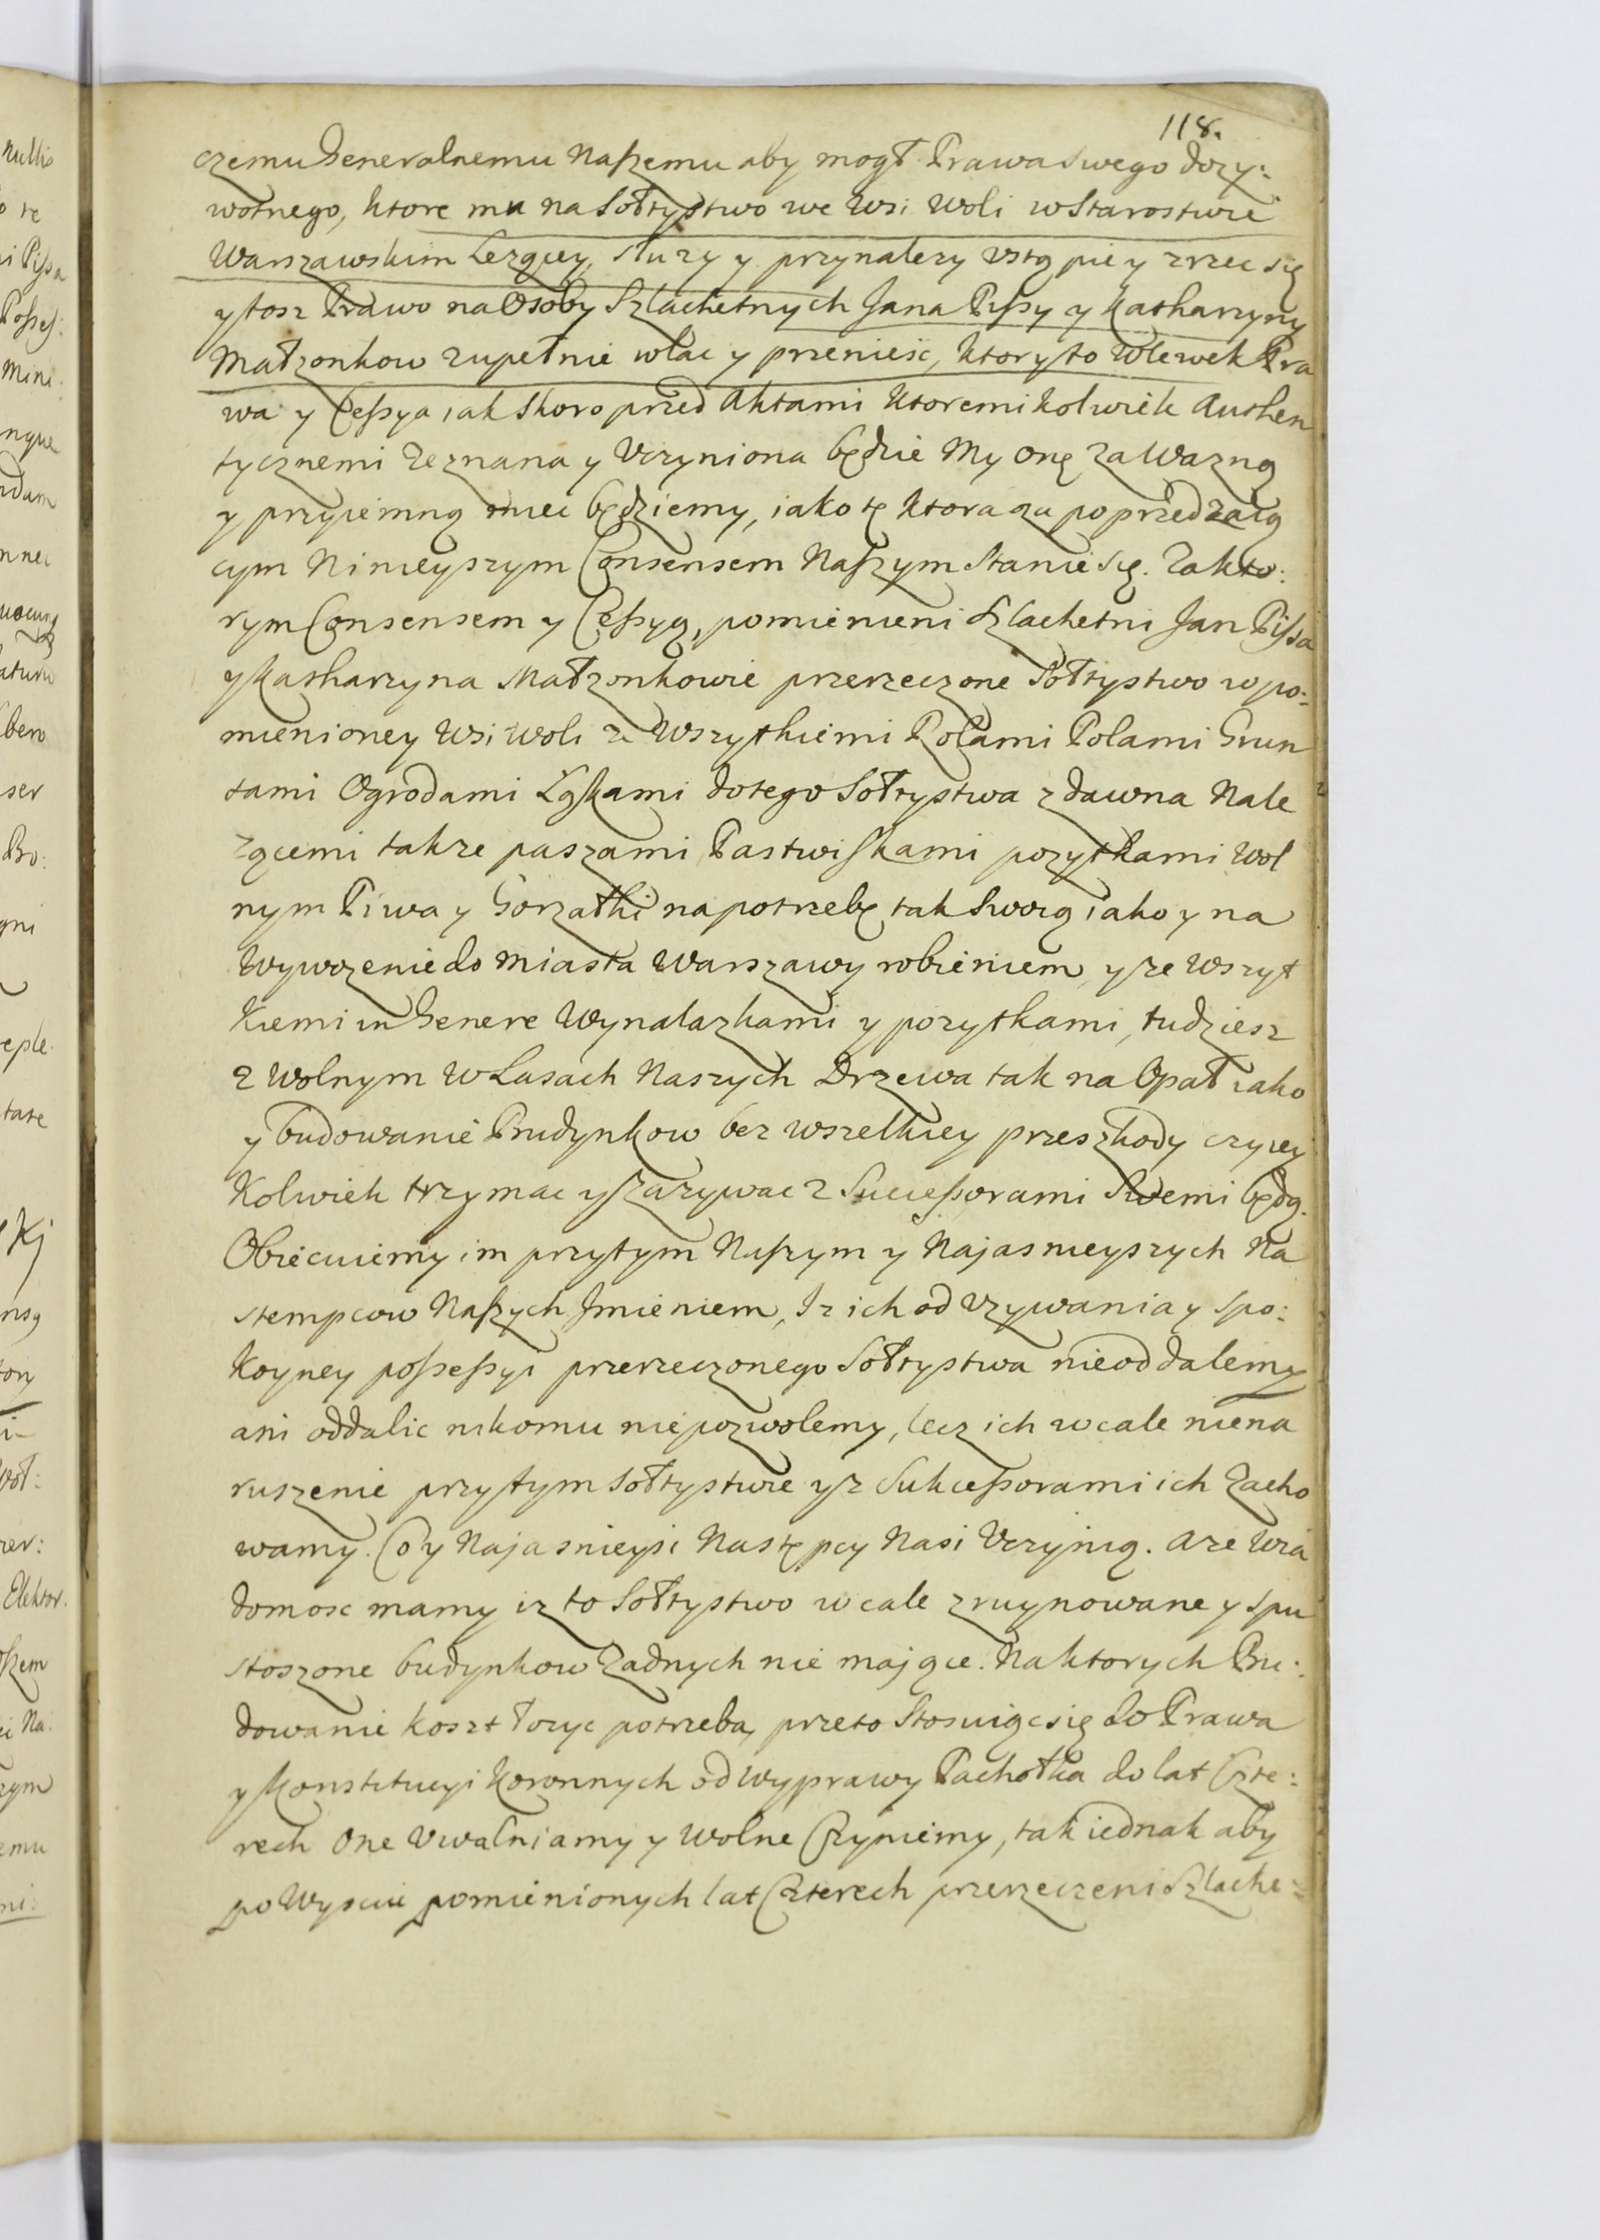 118.
czemu Generalnemu Naszemu aby mogł Prawa swego dozy:
wotnego, ktore mu na Sołtystwo we Wsi Woli w Starostwie
Warszawskim Lezącey, słuzy y przynalezy vstąpic y zrzec się
y tosz Prawo na Osoby Szlachetnych Jana Pissy y Katharzyny
Małzonkow zupełnie wlac y przeniesc, ktory to Wlewek Pra
wa y Cessya iak skoro przed Aktami ktoremi kolwiek Authen
tycznemi Zeznana y Vczyniona będzie My onę za Wazną
y przyiemną miec będziemy, iako tę ktora za poprzedzaią
cym Ninieyszym Consensem Naszym Stanie się. Za kto:
rym Consensem y Cessyą, pomienieni Szlachetni Jan Pissa
y Katharzyna Małzonkowie przerzeczone Sołtystwo w po:
mienioney Wsi Woli ze Wszytkiemi Rolami Polami Grun
tami Ogrodami Łąkami do tego Sołtystwa z dawna Nale
zącemi takze paszami Pastwiskami pozytkami Wol
nym Piwa y Gorzałki na potrzebę tak swoią iako y na
Wywozenie do Miasta Warszawy robieniem, y ze Wszyt
kiemi in Genere Wynalazkami y pozytkami, tudziesz
z Wolnym w Lasach Naszych Drzewa tak na Opał iako
y budowanie Budynkow bez wszelkiey przeszkody czyiey
kolwiek trzymac y zazywac z Successorami Swemi będą.
Obiecuiemy im przytym Naszym y Najasnieyszych Na
stempcow Naszych Jmieniem, Iz ich od Vzywania y spo:
koyney possessyi przerzeczonego Sołtystwa nieoddalemy
ani oddalic nikomu niepozwolemy, lecz ich wcale niena
ruszenie przy tym Sołtystwie y z Sukcessorami ich Zacho
wamy. Co y Najasnieysi Następcy Nasi Vczynią. A ze Wia
domosc mamy iz to Sołtystwo wcale zruynowane y spu
stoszone budynkow Zadnych nie mające. Na ktorych Bu:
dowanie koszt łozyc potrzeba, przeto Stosuiąc się do Prawa
y Konstitucyi Koronnych od Wyprawy Pachołka do lat Czte:
rech One Vwalniamy y Wolne Czyniemy, tak iednak aby
po Wysciu pomienionych lat Czterech przerzeczeni Szlache: